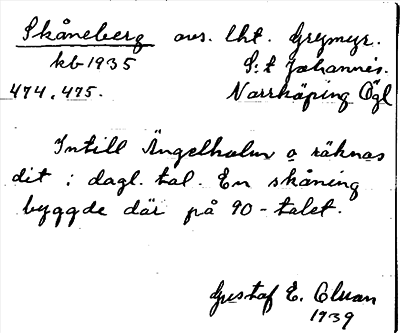 Skåneberg avs. lht. Grymyr.
kb 1935 S:t Johannis.
474, 475. Norrköping Ögl
Intill Ängelholm o räknas
dit i dagl. tal. En skåning
byggde där på 90-talet.
Gustaf E. Cluan
1939